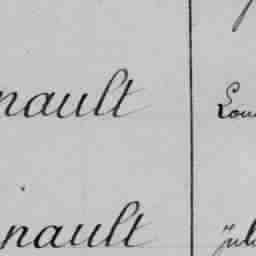 nault Lou
nault jul